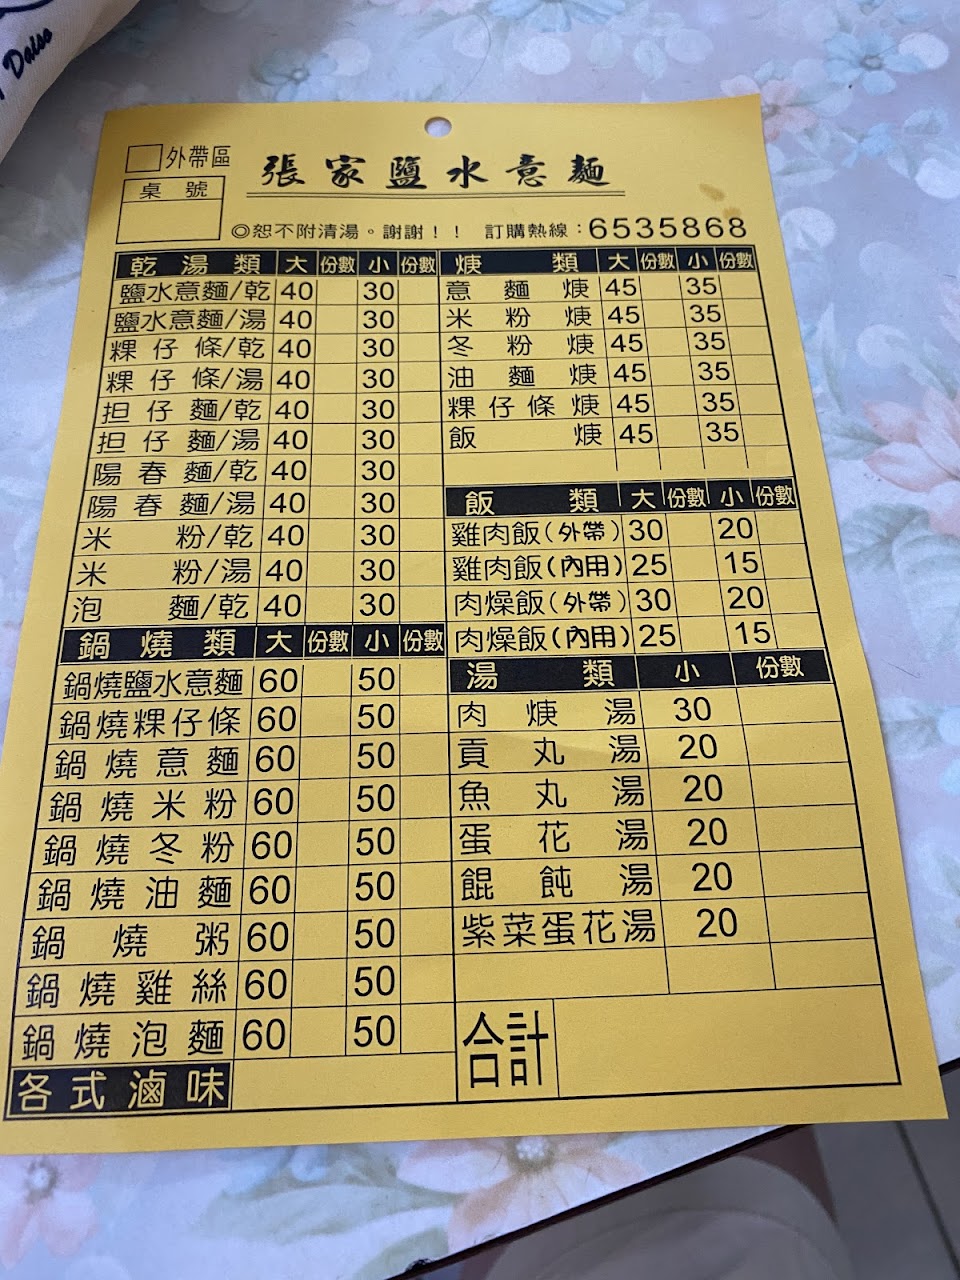 Daiso
外帶區
張家鹽水意麵
桌號
◎恕不附清湯。謝謝！！ 訂購熱線：6535868
乾湯類 大 份數 小 份數
鹽水意麵/乾 40 30
鹽水意麵/湯 40 30
粿仔條/乾 40 30
粿仔條/湯 40 30
担仔麵/乾 40 30
担仔麵/湯 40 30
陽春麵/乾 40 30
陽春麵/湯 40 30
米粉/乾 40 30
米粉/湯 40 30
泡麵/乾 40 30
鍋燒類 大 份數 小 份數
鍋燒鹽水意麵 60 50
鍋燒粿仔條 60 50
鍋燒意麵 60 50
鍋燒米粉 60 50
鍋燒冬粉 60 50
鍋燒油麵 60 50
鍋燒粥 60 50
鍋燒雞絲 60 50
鍋燒泡麵 60 50
各式滷味
焿類 大 份數 小 份數
意麵焿 45 35
米粉焿 45 35
冬粉焿 45 35
油麵焿 45 35
粿仔條焿 45 35
飯焿 45 35
飯類 大 份數 小 份數
雞肉飯(外帶) 30 20
雞肉飯(內用) 25 15
肉燥飯(外帶) 30 20
肉燥飯(內用) 25 15
湯類 小 份數
肉焿湯 30
貢丸湯 20
魚丸湯 20
蛋花湯 20
餛飩湯 20
紫菜蛋花湯 20
合計